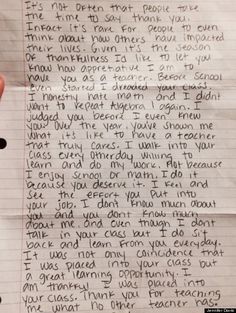 It's not often that people take
the time to say thank you.
Infact it's rare for people to even
think about how others have impacted
their lives. Given it's the season
of thankfulness I'd like to let you
know how appretative I am to
have you as a teacher. Before school
even started I dreaded your class.
I honestly hate math and I didn't
want to repeat Algebra 1 again. I
judged you before I even knew
you. Over the year. You've shown me
what it's like to have a teacher
that truly cares. I walk into your
class everyother day willing to
learn and do my work. Not because
I enjoy school or math. I do it
because you deserve it. I feel and
see the effort you put into
your job. I don't know much about
you and you don't know much
about me. And even though I don't
talk in your class but I do sit
back and learn from you everyday.
It was not only coincidence that
I was placed into your class but
a great learning opportunity. I
am thankful I was placed into
your class. Thank you for teaching
me what no other teacher has.
Jennifer Davis